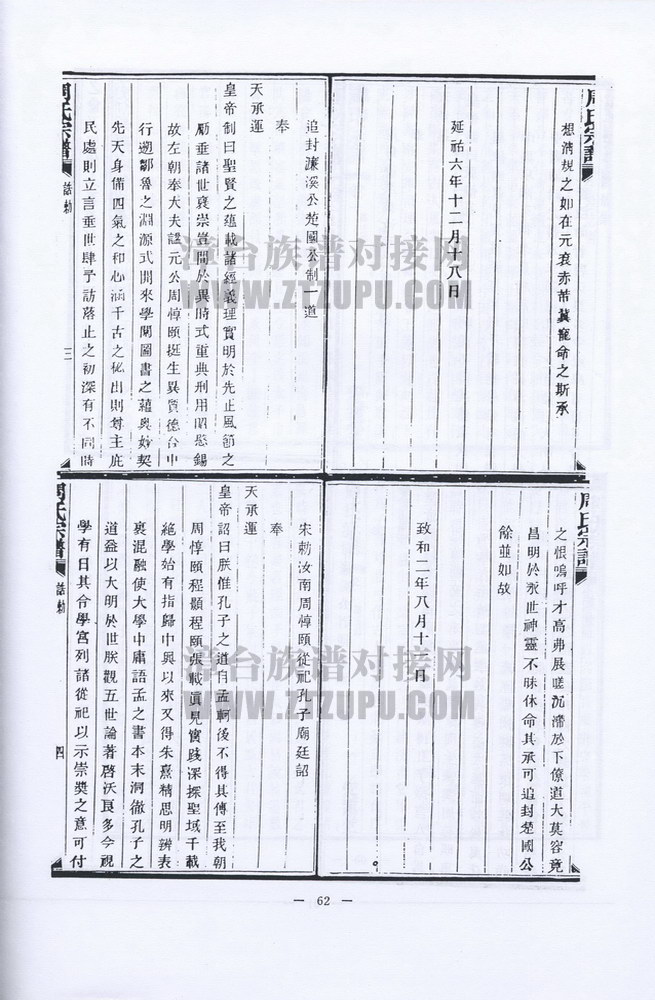 周氏宗譜
想淸規之如在元袞赤芾冀寵命之斯承
延祐六年十二月十八日
追封濂溪公楚國公制一道
奉
天承運
皇帝制曰聖賢之蘊載諸經義理實明於先正風節之
勵垂諸世褒崇豈間於異時式重典刑用昭慰錫
故左朝奉大夫諡元公周惇頤挺生異質德合中
行遡鄒魯之淵源式開來學闡圖書之蘊奧妙契
先天身備四氣之和心涵千古之秘出則尊主庇
民處則立言垂世肆予訪落止之初深有不同時
周氏宗譜
誥勅
三
周氏宗譜
之恨嗚呼才高弗展嗟沉滯於下僚道大莫容竟
昌明於永世神靈不昧休命其承可追封楚國公
餘並如故
致和二年八月十二日
宋勅汝南周惇頤從祀孔子廟廷詔
奉
天承運
皇帝詔曰朕惟孔子之道自孟軻後不得其傳至我朝
周惇頤程顥程頤張載眞見實踐深探聖域千載
絶學始有指歸中興以來又得朱熹精思明辨表
裏混融使大學中庸語孟之書本末洞徹孔子之
道益以大明於世朕觀五世論著啓沃良多今視
學有日其令學宮列諸從祀以示崇奬之意可付
周氏宗譜
誥勅
四
— 62 —
漳台族谱对接网
WWW.ZTZUPU.COM
漳台族谱对接网
WWW.ZTZUPU.COM